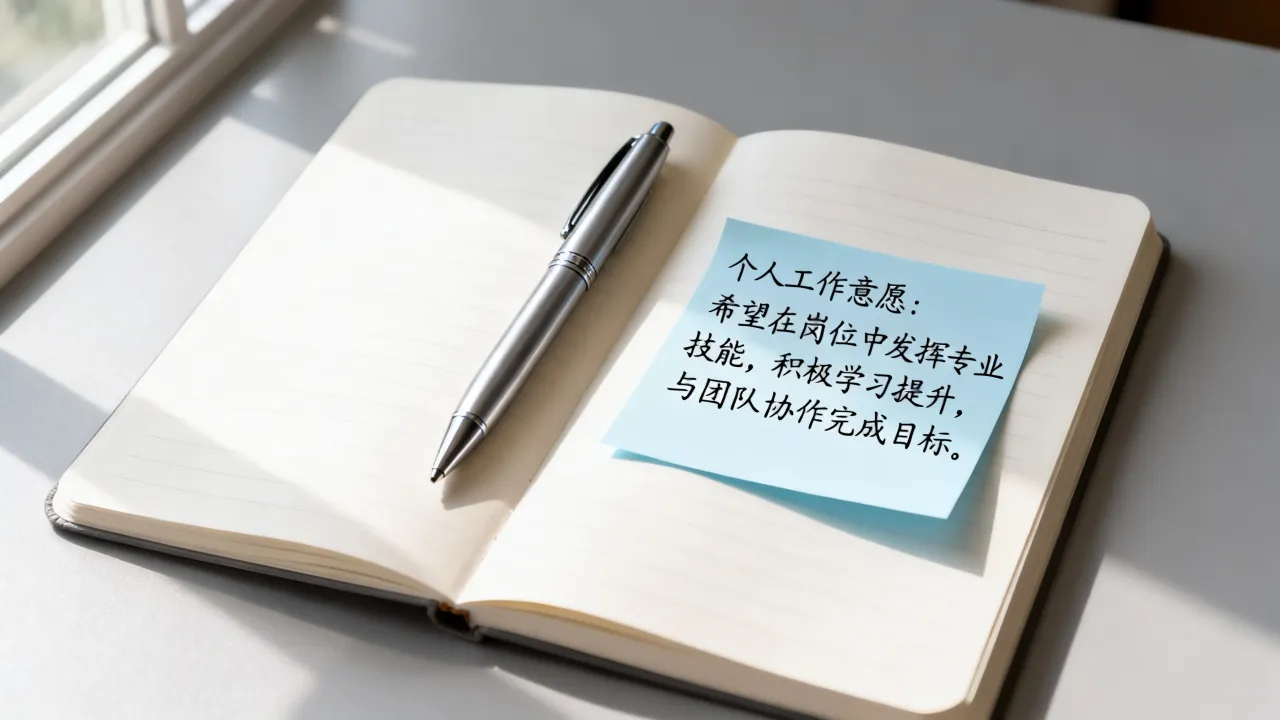 个人工作意愿：
希望在岗位中发挥专业
技能，积极学习提升，
与团队协作完成目标。